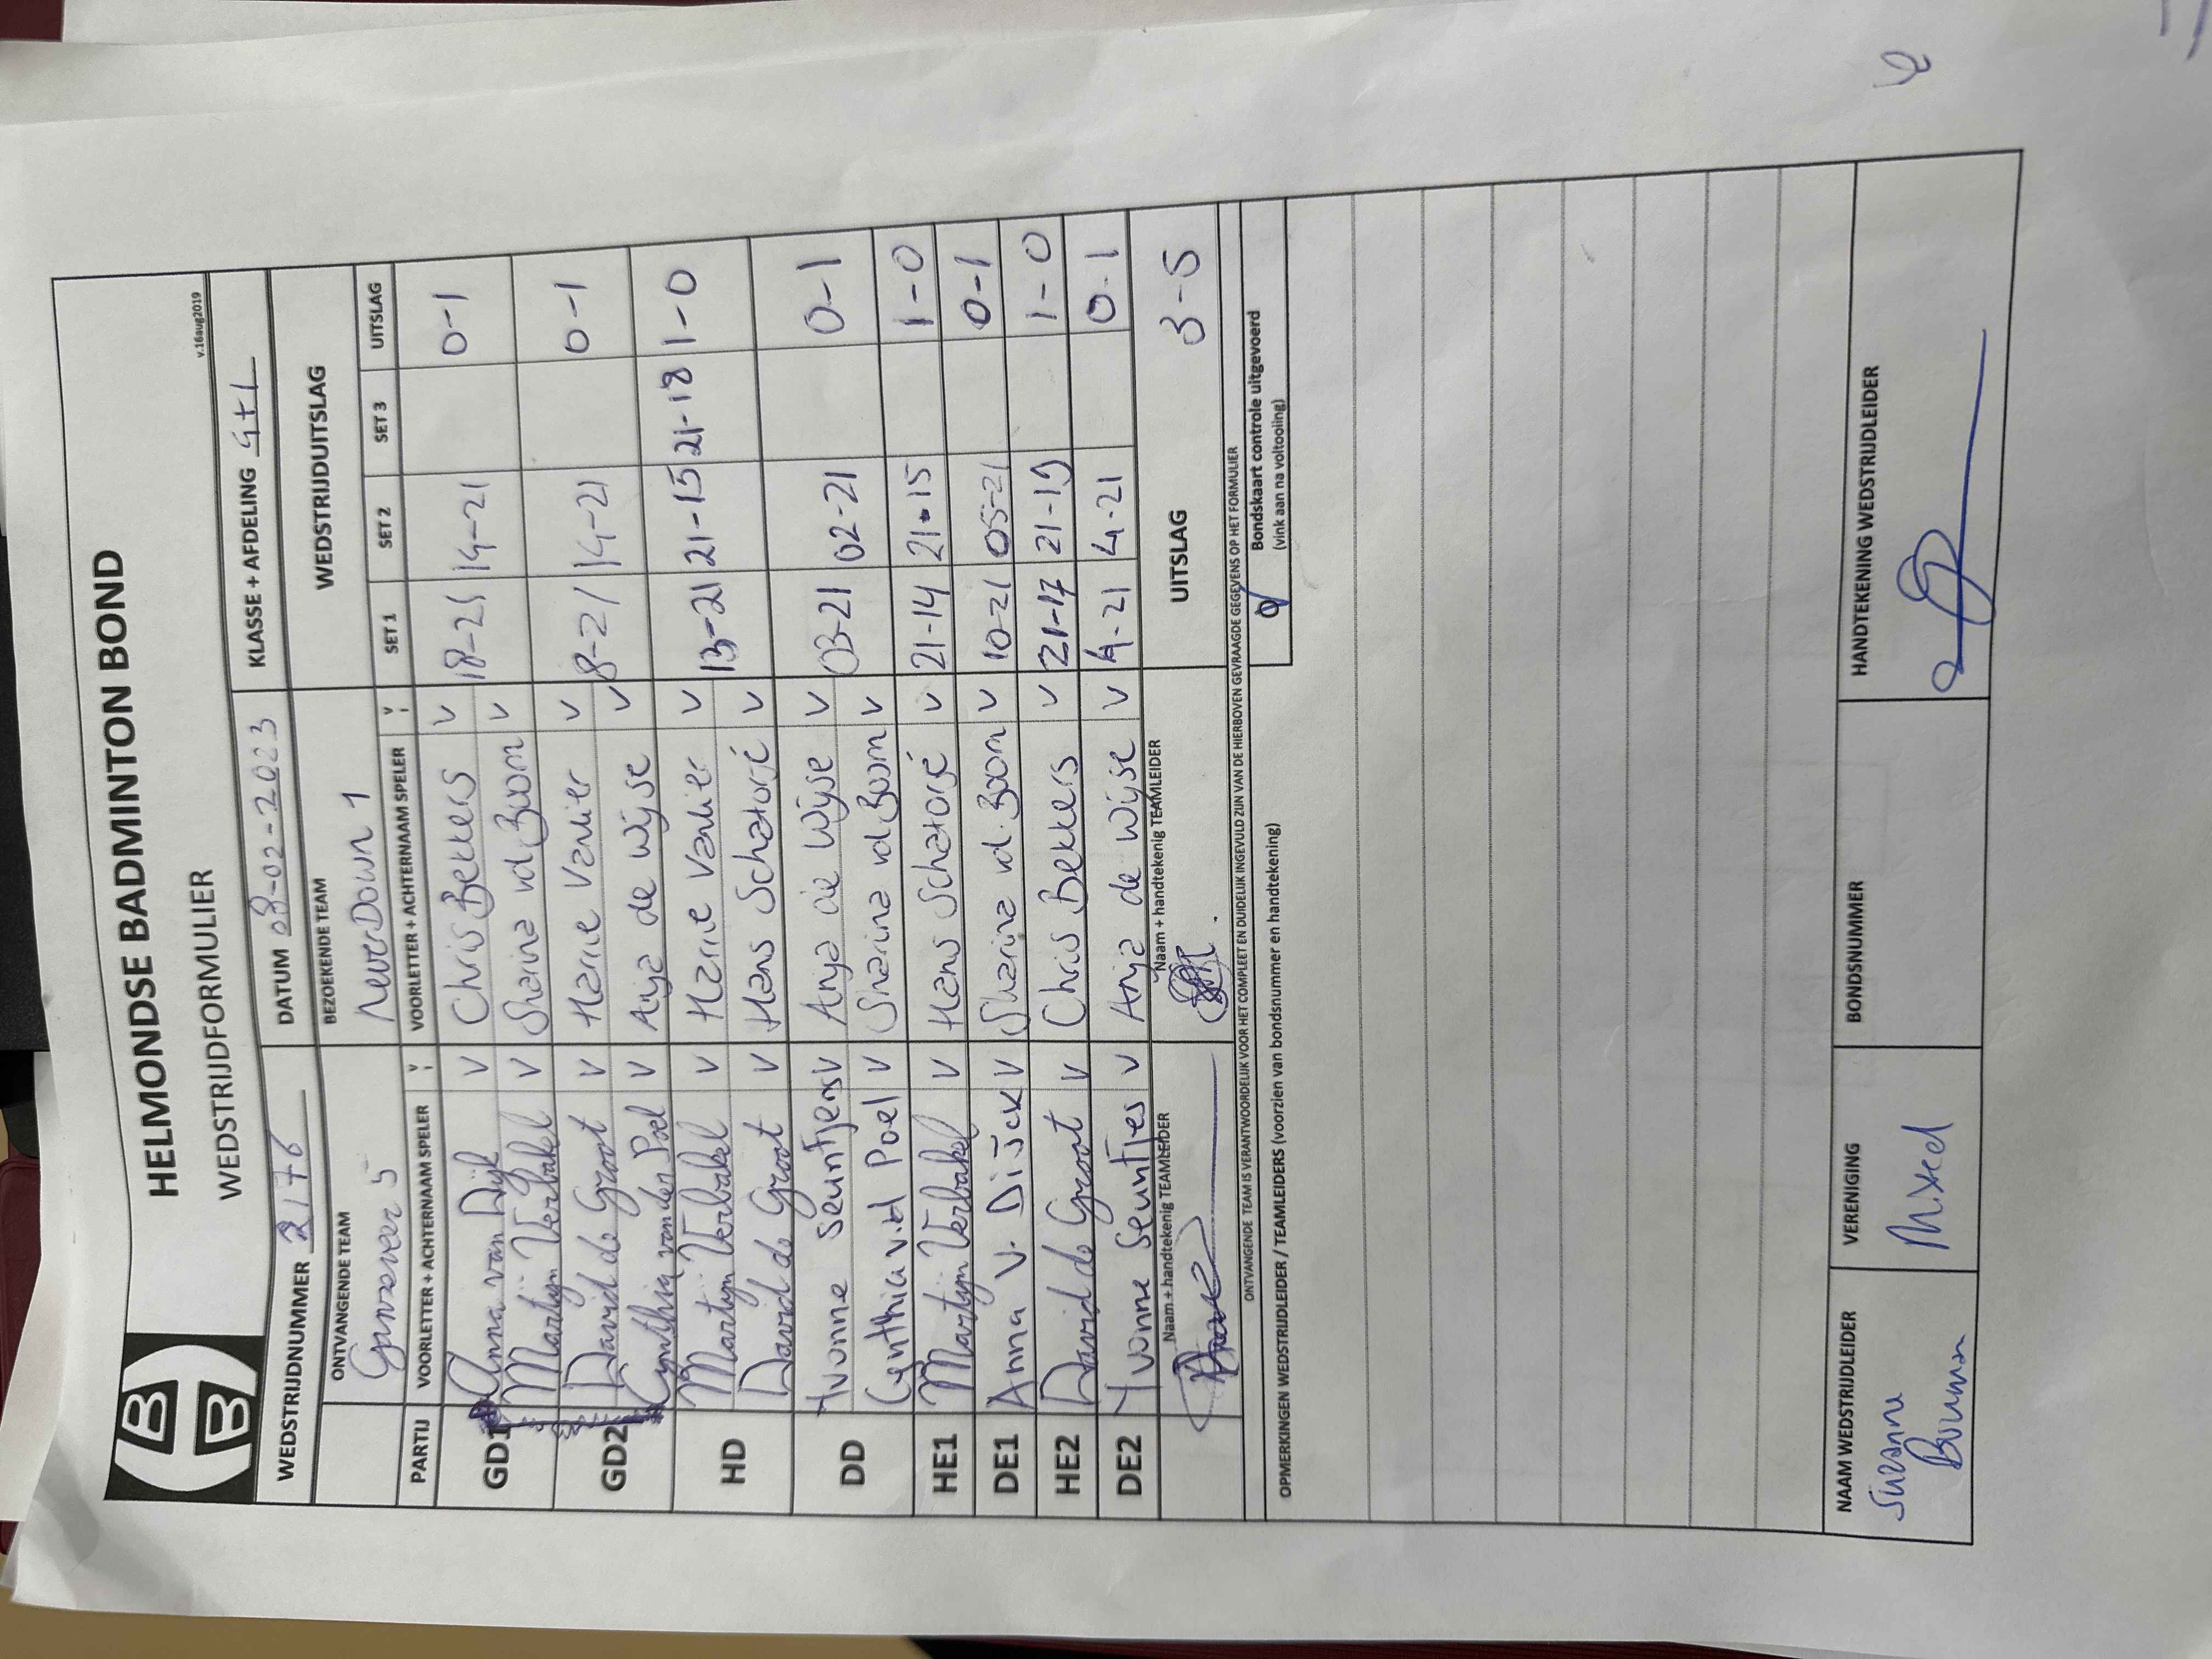 HELMONDSE BADMINTON BOND
WEDSTRIJDFORMULIER
v.16aug2019
WEDSTRIJDNUMMER 2176 DATUM 08-02-2023 KLASSE + AFDELING 4+1
ONTVANGENDE TEAM BEZOEKENDE TEAM WEDSTRIJDUITSLAG
5 NeverDown 1
PARTIJ VOORLETTER + ACHTERNAAM SPELER V VOORLETTER + ACHTERNAAM SPELER V SET 1 SET 2 SET 3 UITSLAG
GD1 Anna van Dijk V Chris Bekkers V 18-21 14-21 0-1
Martijn Verbakel V Sharina vd Boom V
GD2 David de Groot V Harrie Vanlier V 8-21 14-21 0-1
Cynthia van der Poel V Anja de Wijse V
HD Martijn Verbakel V Harrie Vanlier V 13-21 21-15 21-18 1-0
David de Groot V Hans Schatorjé V
DD Yvonne Seuntjens V Anja de Wijse V 03-21 02-21 0-1
Cynthia v.d Poel V Sharina vd Boom V
HE1 Martijn Verbakel V Hans Schatorjé V 21-14 21-15 1-0
DE1 Anna v. Dijck V Sharina vd. Boom V 10-21 05-21 0-1
HE2 David de Groot V Chris Bekkers V 21-17 21-19 1-0
DE2 Yvonne Seuntjes V Anja de Wijse V 4-21 4-21 0-1
Naam + handtekenig TEAMLEIDER Naam + handtekenig TEAMLEIDER UITSLAG 3-5
ONTVANGENDE TEAM IS VERANTWOORDELIJK VOOR HET COMPLEET EN DUIDELIJK INGEVULD ZIJN VAN DE HIERBOVEN GEVRAAGDE GEGEVENS OP HET FORMULIER
OPMERKINGEN WEDSTRIJDLEIDER / TEAMLEIDERS (voorzien van bondsnummer en handtekening) Bondskaart controle uitgevoerd
(vink aan na voltooling)
NAAM WEDSTRIJDLEIDER VERENIGING BONDSNUMMER HANDTEKENING WEDSTRIJDLEIDER
Suzanne Mixed
Bouman